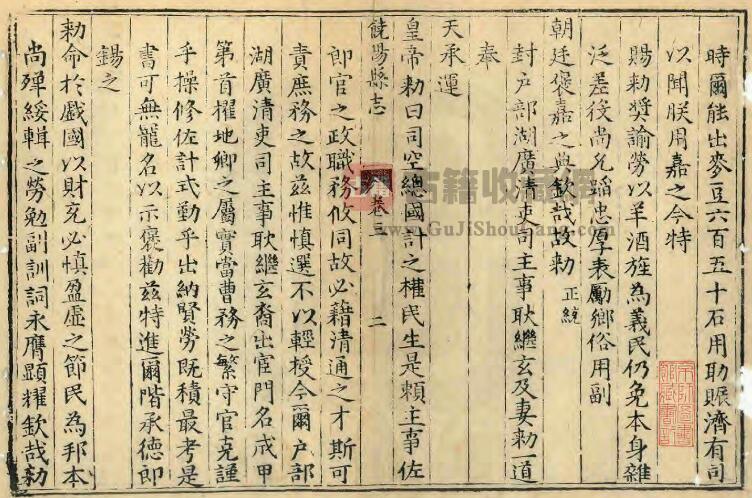 時爾能出麥豆六百五十石用助賑濟有司
以聞朕用嘉之今特
賜勅奬諭勞以羊酒旌為義民仍免本身雜
泛差役尚允蹈忠厚表勵鄉俗用副
朝廷褒嘉之典欽哉故勅 正統
封户部湖廣清吏司主事耿繼玄及妻勅一道
奉
天承運
皇帝勅曰司空總國計之權民生是賴主事佐
饒陽縣志 卷三 二
郎官之政職務攸同故必藉清通之才斯可
責庶務之故兹惟慎選不以輕授今爾户部
湖廣清吏司主事耿繼玄裔出宦門名戒甲
第首擢地卿之屬實當曹務之繁守官克謹
乎操修佐計式勤乎出納賢勞既積最考是
書可無寵名以示褒勸兹特進爾階承德郎
錫之
勅命於戲國以財充必慎盈虛之節民為邦本
尚殫綏輯之勞勉副訓詞永膺顯耀欽哉勅
古籍收藏網
www.GuJiShouCang.com